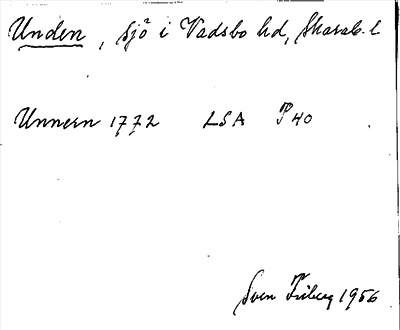 Unden, sjö i Vadsbo hd, Skarab. l
Unnern 1772 LSA P 40
Sven Friberg 1956